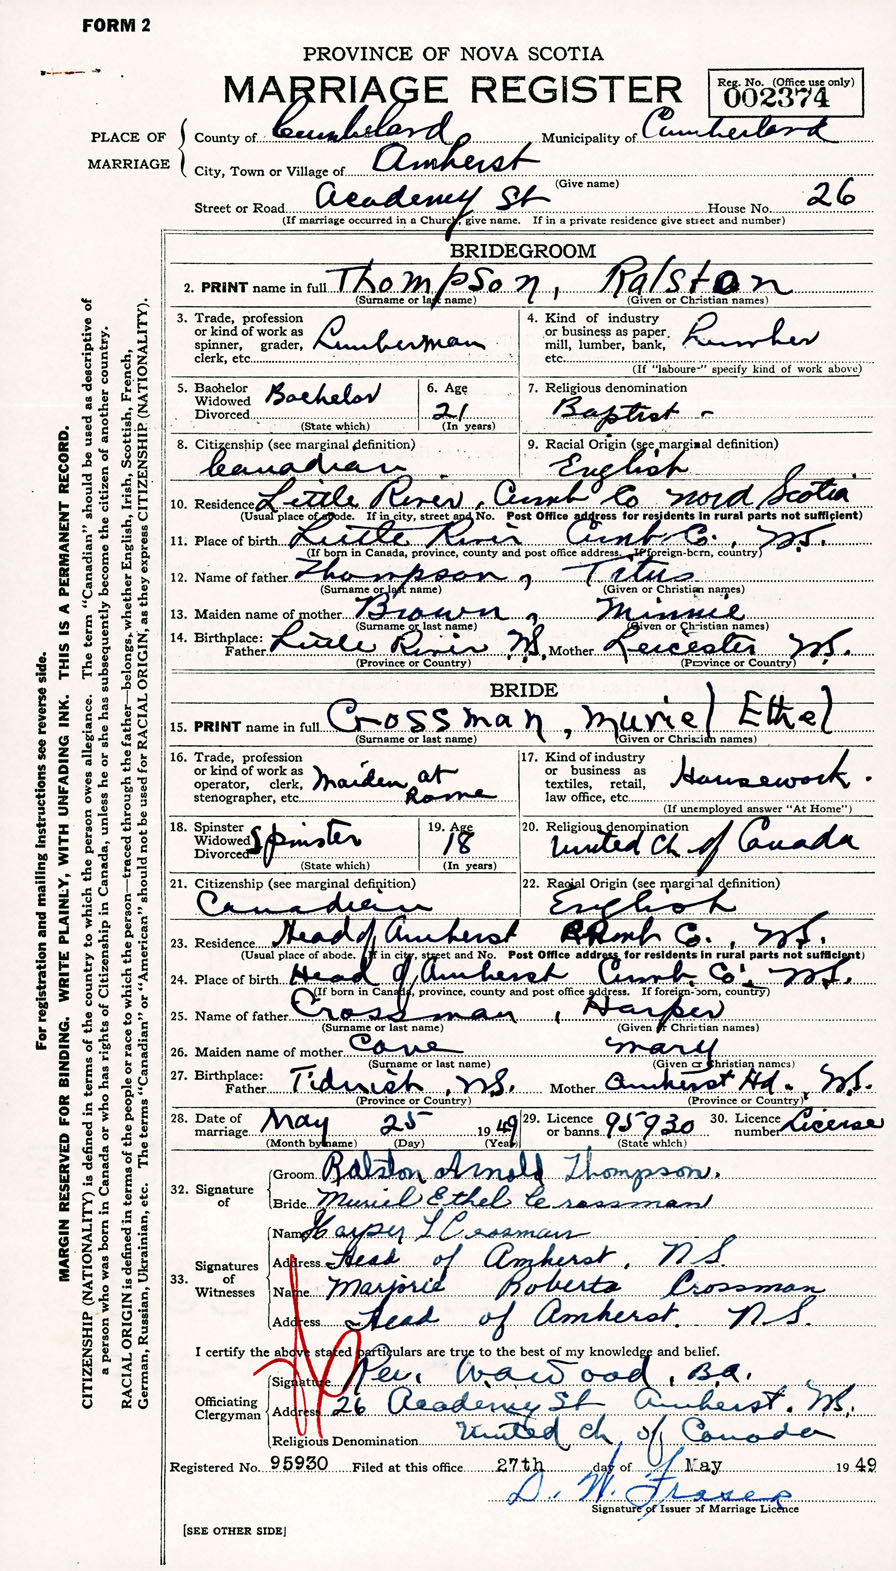 FORM 2
PROVINCE OF NOVA SCOTIA
MARRIAGE REGISTER
Reg. No. (Office use only)
002374
PLACE OF MARRIAGE
County of Cumberland Municipality of Cumberland
City, Town or Village of Amherst
(Give name)
Street or Road Academy St House No. 26
(If marriage occurred in a Church, give name. If in a private residence give street and number)
BRIDEGROOM
2. PRINT name in full Thompson, Ralston
(Surname or last name) (Given or Christian names)
3. Trade, profession or kind of work as spinner, grader, clerk, etc. Lumberman
4. Kind of industry or business as paper, mill, lumber, bank, etc. Lumber
(If "laboure-" specify kind of work above)
5. Bachelor Widowed Divorced Bachelor
(State which)
6. Age 21
(In years)
7. Religious denomination
Baptist -
8. Citizenship (see marginal definition)
Canadian
9. Racial Origin (see marginal definition)
English
10. Residence Little River, Cumb Co Nova Scotia
(Usual place of abode. If in city, street and No. Post Office address for residents in rural parts not sufficient)
11. Place of birth Little River Cumb Co., N.S.
(If born in Canada, province, county and post office address. If foreign-born, country)
12. Name of father Thompson, Titus
(Surname or last name) (Given or Christian names)
13. Maiden name of mother Brown, Minnie
(Surname or last name) (Given or Christian names)
14. Birthplace: Father Little River N.S. Mother Leicester N.S.
(Province or Country) (Province or Country)
BRIDE
15. PRINT name in full Crossman, Muriel Ethel
(Surname or last name) (Given or Christian names)
16. Trade, profession or kind of work as operator, clerk, stenographer, etc. Maiden at Home
17. Kind of industry or business as textiles, retail, law office, etc. Housework.
(If unemployed answer "At Home")
18. Spinster Widowed Divorced Spinster
(State which)
19. Age 18
(In years)
20. Religious denomination
United Ch of Canada
21. Citizenship (see marginal definition)
Canadian
22. Racial Origin (see marginal definition)
English
23. Residence Head of Amherst Cumb Co., N.S.
(Usual place of abode. If in city, street and No. Post Office address for residents in rural parts not sufficient)
24. Place of birth Head of Amherst Cumb. Co., N.S.
(If born in Canada, province, county and post office address. If foreign-born, country)
25. Name of father Crossman, Harper
(Surname or last name) (Given or Christian names)
26. Maiden name of mother Cove Mary
(Surname or last name) (Given or Christian names)
27. Birthplace: Father Tidnish, N.S. Mother Amherst Hd., N.S.
(Province or Country) (Province or Country)
28. Date of marriage May 25 1949
(Month by name) (Day) (Year)
29. Licence or banns 95930
(State which)
30. Licence number License
32. Signature of
Groom Ralston Arnold Thompson.
Bride Muriel Ethel Crossman
33. Signatures of Witnesses
Name Harper L Crossman
Address Head of Amherst, N S
Name Marjorie Roberta Crossman
Address Head of Amherst. N S.
I certify the above stated particulars are true to the best of my knowledge and belief.
Officiating Clergyman
Signature Rev. W.A. Wood, B.A.
Address 26 Academy St Amherst. N.S.
Religious Denomination United Ch of Canada
Registered No. 95930 Filed at this office 27th day of May 1949
D. W. Fraser
Signature of Issuer of Marriage Licence
[SEE OTHER SIDE]
For registration and mailing instructions see reverse side.
MARGIN RESERVED FOR BINDING. WRITE PLAINLY, WITH UNFADING INK. THIS IS A PERMANENT RECORD.
CITIZENSHIP (NATIONALITY) is defined in terms of the country to which the person owes allegiance. The term "Canadian" should be used as descriptive of
a person who was born in Canada or who has rights of Citizenship in Canada, unless he or she has subsequently become the citizen of another country.
RACIAL ORIGIN is defined in terms of the people or race to which the person—traced through the father—belongs, whether English, Irish, Scottish, French,
German, Russian, Ukrainian, etc. The terms "Canadian" or "American" should not be used for RACIAL ORIGIN, as they express CITIZENSHIP (NATIONALITY).